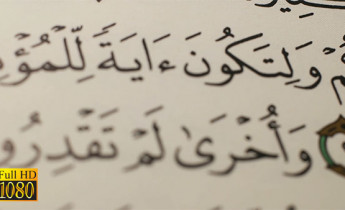 وَلِتَكُونَ ءَايَةً لِّلْمُؤْمِ
وَأُخْرَىٰ لَمْ تَقْدِرُو
Full HD
1080